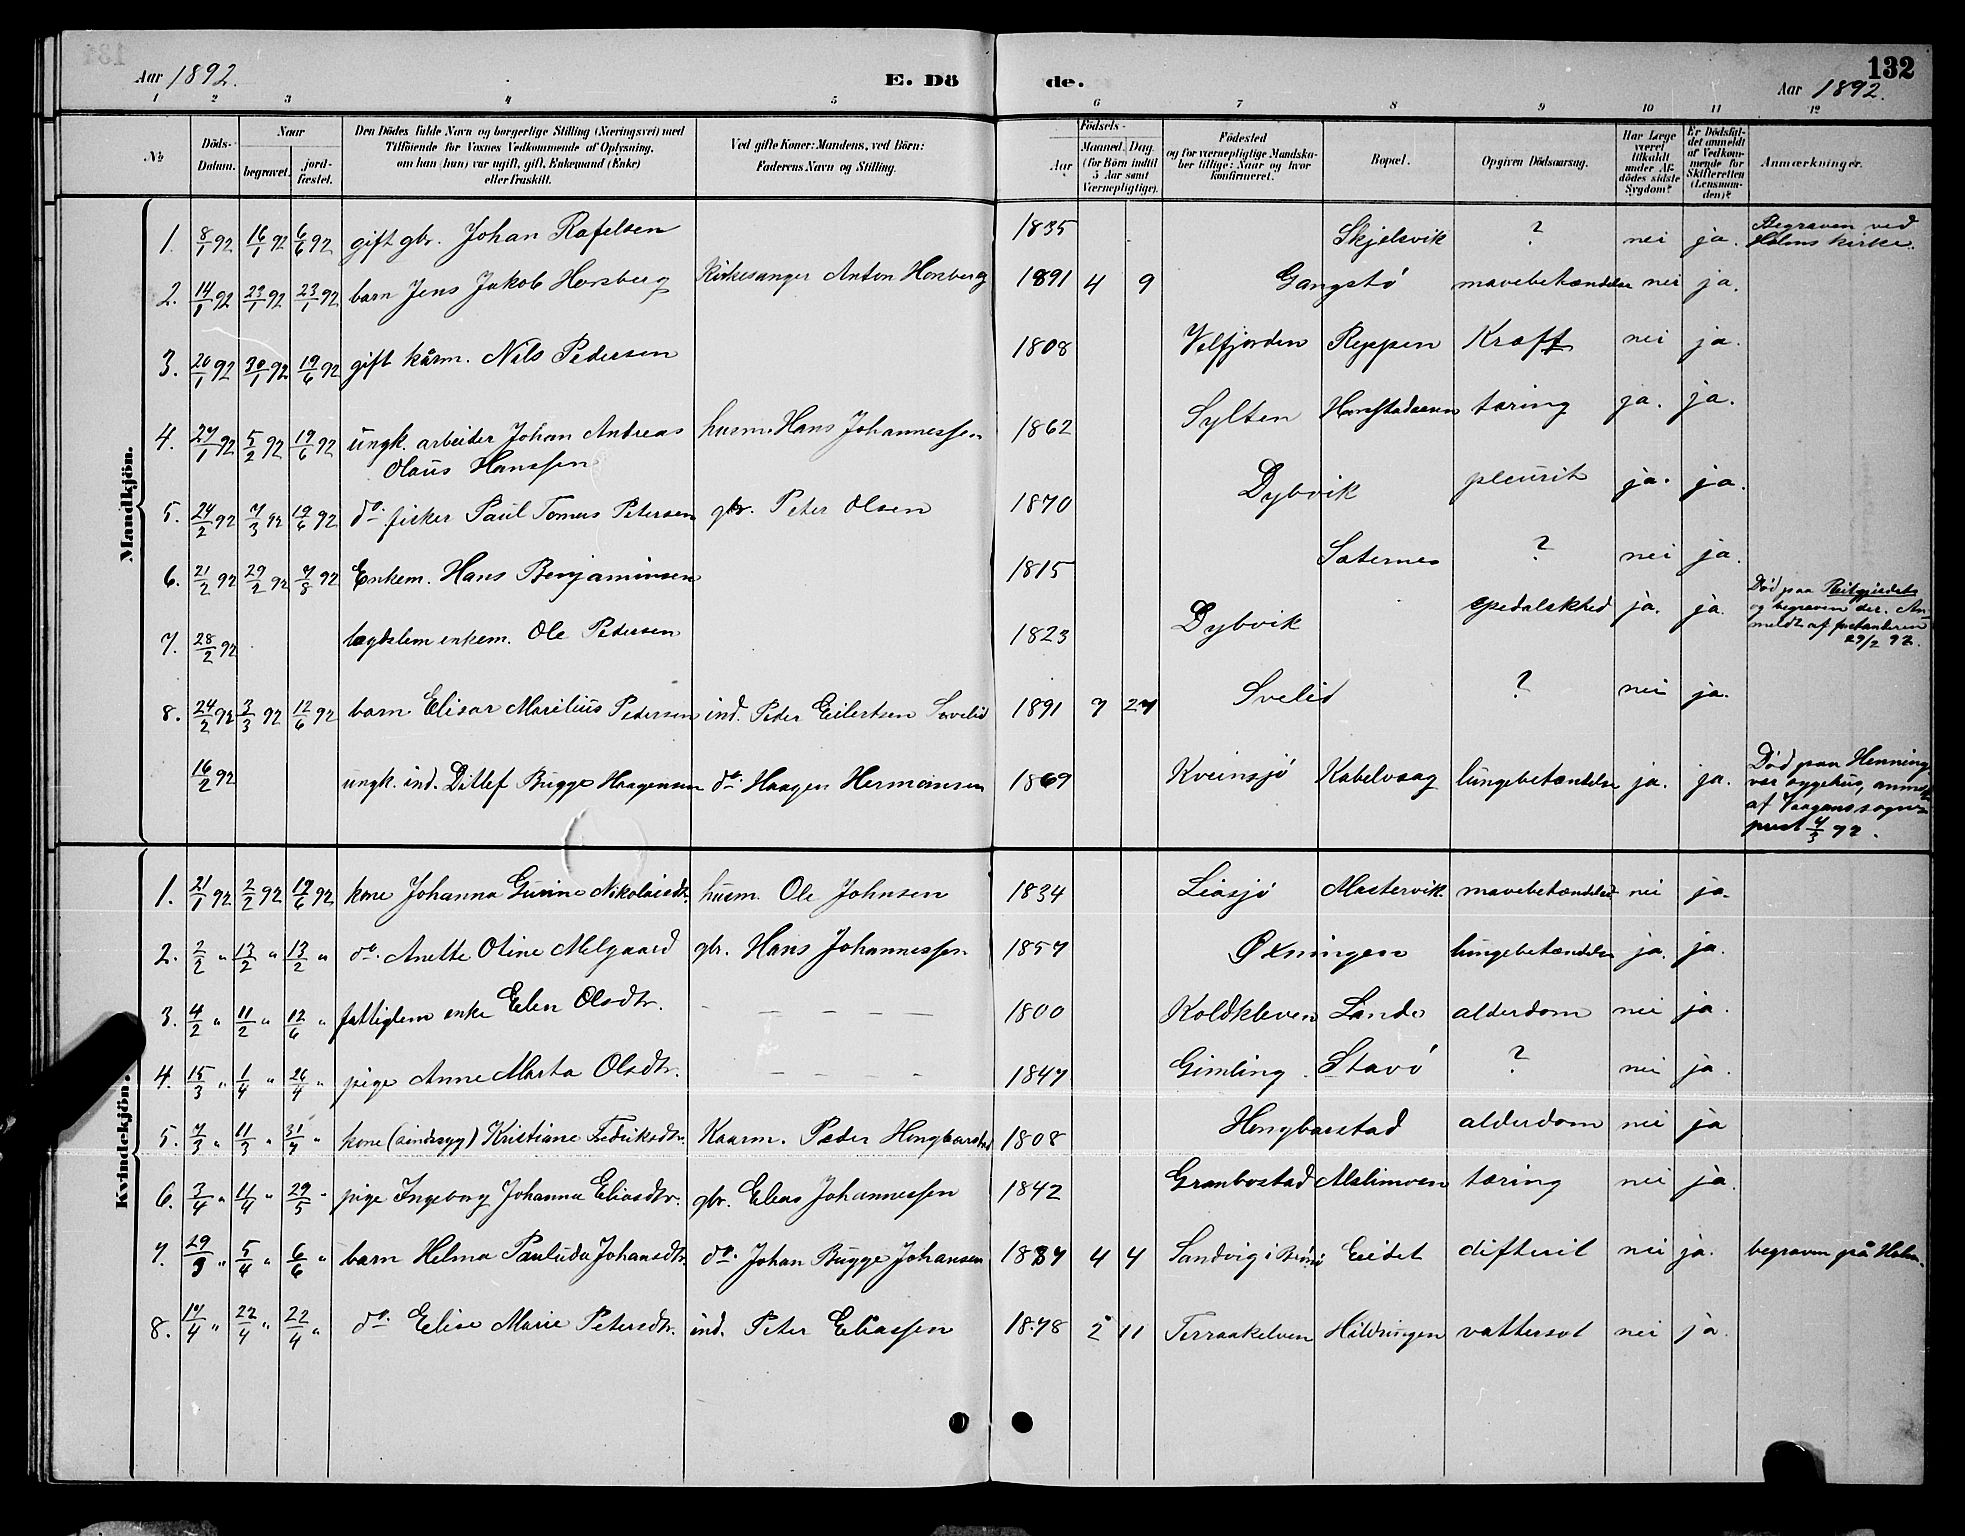 Aar 1892. E. Dö de. 132
Aar 1892.
1 2 3 4 5 6 7 8 9 10 11 12
№ Döds-Datum. Naar begravet. jord-fæstet. Den Dödes fulde Navn og borgerlige Stilling (Næringsvei) med Tilföiende for Voxnes Vedkommende af Oplysning, om han (hun) var ugift, gift, Enkemand (Enke) eller fraskilt. Ved gifte Koner: Mandens, ved Börn: Faderens Navn og Stilling. Födsels- Aar Maaned. Dag. (for Börn indtil 5 Aar samt Værnepligtige). Födested og for værnepligtige Mandska-ber tillige: Naar og hvor konfirmeret. Bopæl. Opgiven Dödsaarsag. Har Læge været tilkaldt under Af-dödes sidste Sygdom? Er Dödsfal-det anmeldt af Vedkom-mende for Skifteretten (Lensman-den)? Anmærkninger.
Mandkjön.
1. 8/1 92 16/1 92 6/6 92 gift gbr. Johan Rafelsen 1835 Skjelsvik ? nei ja. Begraven ved
Holms kirke.
2. 14/1 92 23/1 92 23/1 92 barn Jens Jakob Horsberg Kirkesanger Anton Horsberg 1891 4 9 Gangstö mavebetændelse nei ja.
3. 20/1 92 30/1 92 19/6 92 gift kårm. Nils Pedersen 1808 Velfjorden Reppen Kræft nei ja.
4. 27/1 92 5/2 92 19/6 92 ungk. arbeider Johan Andreas husm. Hans Johannessen 1862 Sylten tæring ja. ja.
Olaus Hanssen
5. 24/2 92 7/3 92 19/6 92 do. fisker Paul Tomas Petersen gbr. Peter Olsen 1870 Dybvik pleurit ja. ja.
6. 21/2 92 29/2 92 7/8 92 Enkem. Hans Benjaminsen 1815 Sæternes ? nei ja.
7. 28/2 92 lægdslem enkem. Ole Pedersen 1823 Dybvik spedalskhed ja. ja. Död paa Reitgjerdet
og begraven der. An-
meldt af forstanderen
29/2 92.
8. 24/2 92 3/3 92 12/6 92 barn Elisar Marelius Pedersen ind. Peder Eilertsen Svelid 1891 7 27 Svelid ? nei ja.
16/2 92 ungk. ind. Ditlef Bugge Haagensen do. Haagen Hermansen 1869 Kveinsjö Kabelvaag lungebetændelse ja. ja. Död paa Hennings-
vær sygehus, anmeldt
af Vaagans sogne-
prest 7/3 92.
Kvindekjön.
1. 21/1 92 2/2 92 19/6 92 kone Johanna Gurine Nikolaisdtr. husm. Ole Johnsen 1834 Liasjö Mastervik mavebetændelse nei ja.
2. 2/2 " 13/2 " 13/2 " do. Anette Otine Melgaard gbr. Hans Johannessen 1857 Øxningen lungebetændelse ja. ja.
3. 4/2 " 11/2 " 12/6 " fattiglem enke Elen Olsdtr. - - - - - 1800 Koldkleven Lande alderdom nei ja.
4. 15/3 " 1/4 " 26/4 " pige Anne Marta Olsdtr. - - - - 1847 Gimling Stavö ? nei ja.
5. 7/3 " 11/3 " 31/7 " kone (sindssyg) Kristiane Fedriksdtr. Kaarm. Peder Hongbarstad 1808 Hongbarstad alderdom nei ja
6. 3/4 " 11/4 " 29/5 " pige Ingeborg Johanna Eliasdtr. gbr. Elias Johannessen 1842 Granbostad tæring nei ja.
7. 29/3 " 5/4 " 6/6 " barn Helma Pauluda Johansdtr. do. Johan Bugge Johansen 1887 4 4 Sandvig i Brönö Eidet difterit nei ja. begraven på Holm.
8. 17/4 " 22/4 " 22/4 " do. Elise Marie Petersdtr. ind. Peter Eliassen 1878 2 11 Terraakelven Hildringen vattersot nei ja.